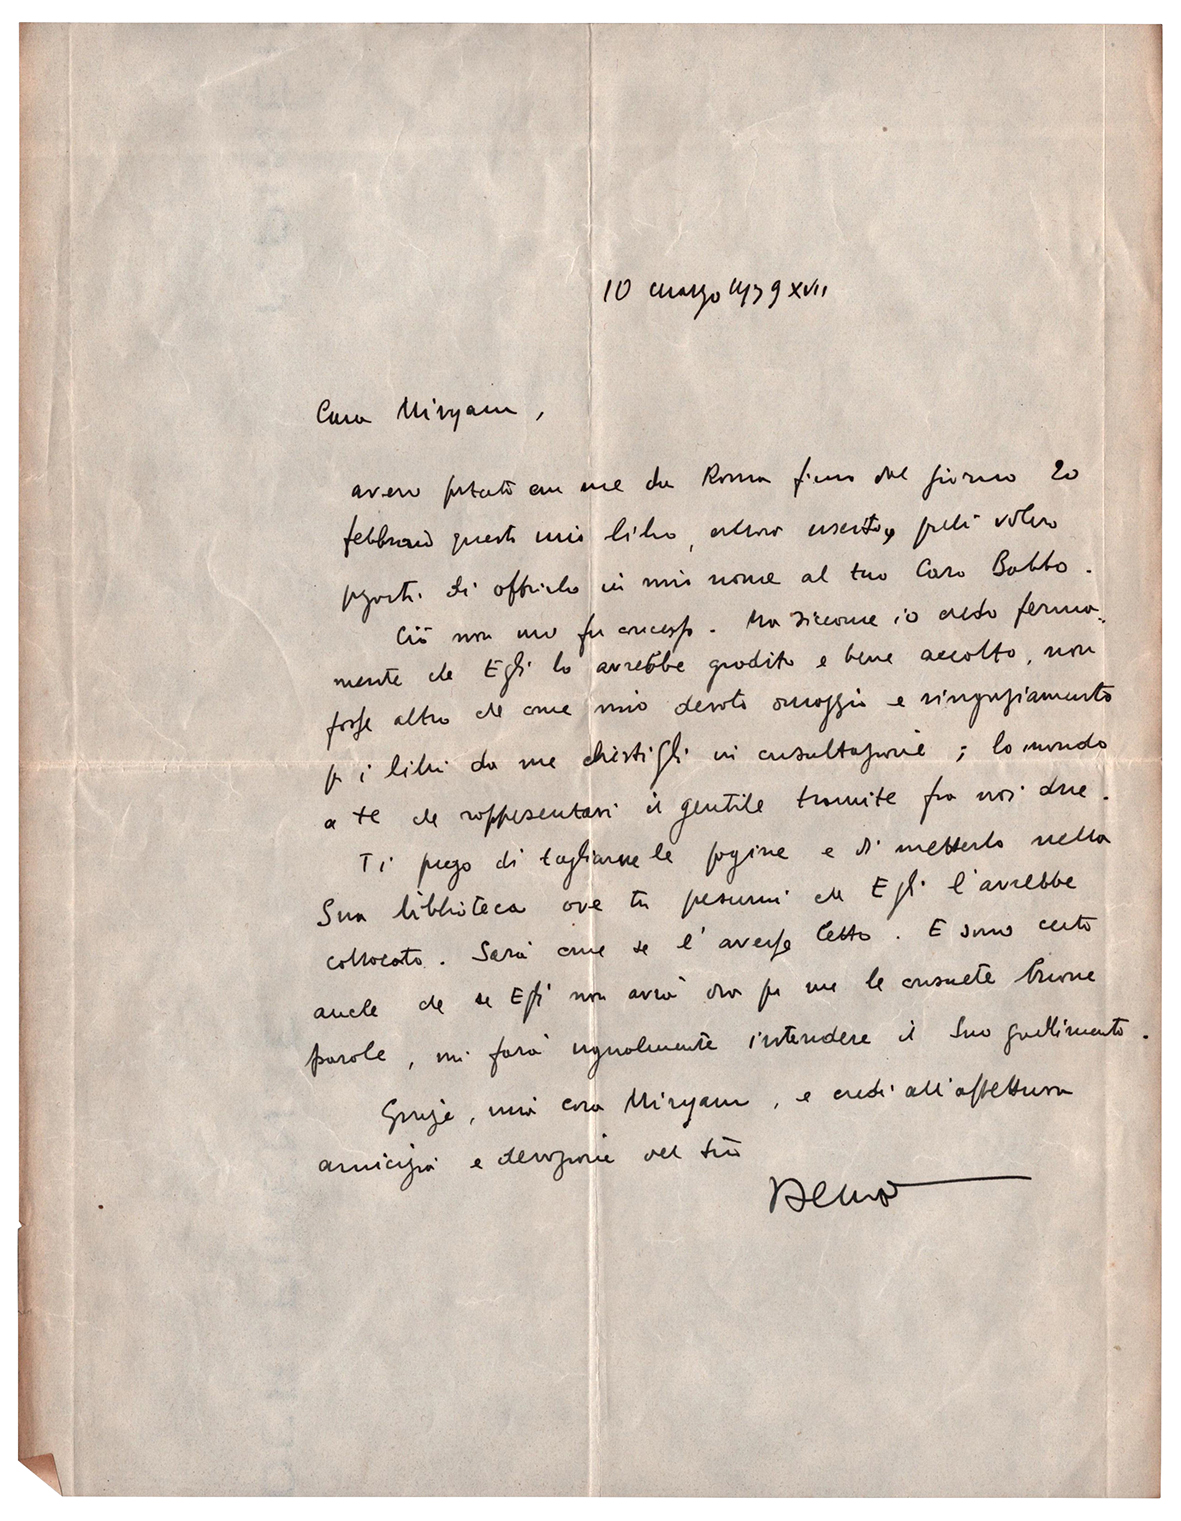 10 marzo 1939 XVII
Cara Miryam,
avevo portato con me da Roma fino dal giorno 20
febbraio questo mio libro, allora uscito, per
di offrirlo in mio nome al tuo Caro Babbo.
Ciò non mi fu concesso. Ma siccome io credo ferma-
mente che Egli lo avrebbe gradito e bene accolto, non
forse altro che come mio devoto omaggio e ringraziamento
per i libri da me chiestigli in consultazione; lo mando
a te che rappresentavi il gentile tramite fra noi due.
Ti prego di tagliarne le pagine e di metterlo nella
Sua biblioteca ove tu presumi che Egli l'avrebbe
collocato. Sarà come se l'avesse letto. E sono certo
anche che se Egli non avrà ora per me le consuete buone
parole, mi farà ugualmente intendere il Suo gradimento.
Grazie, mia cara Miryam, e credi all'affettuosa
amicizia e devozione del tuo